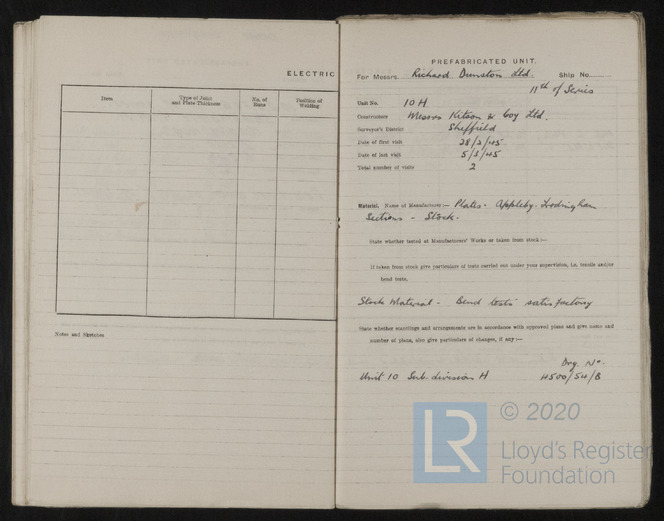 ELECTRIC
Item
Type of Joint
and Plate Thickness
No. of
Runs
Position of
Welding
Notes and Sketches
PREFABRICATED UNIT.
For Messrs. Richard Dunston Ltd. Ship No.
11th of Series
Unit No. 10 H
Constructors Messrs Kitson & Coy Ltd.
Surveyor's District Sheffield
Date of first visit 28/2/45
Date of last visit 5/3/45
Total number of visits 2
Material. Name of Manufacturer:— Plates - Appleby. Frodingham
Sections - Stock.
State whether tested at Manufacturers' Works or taken from stock:—
If taken from stock give particulars of tests carried out under your supervision, i.e. tensile and/or
bend tests.
Stock Material - Bend tests satisfactory
State whether scantlings and arrangements are in accordance with approved plans and give name and
number of plans, also give particulars of changes, if any:—
Drg. No.
Unit 10 Sub. division H 4500/54/B
LR
© 2020
Lloyd's Register
Foundation